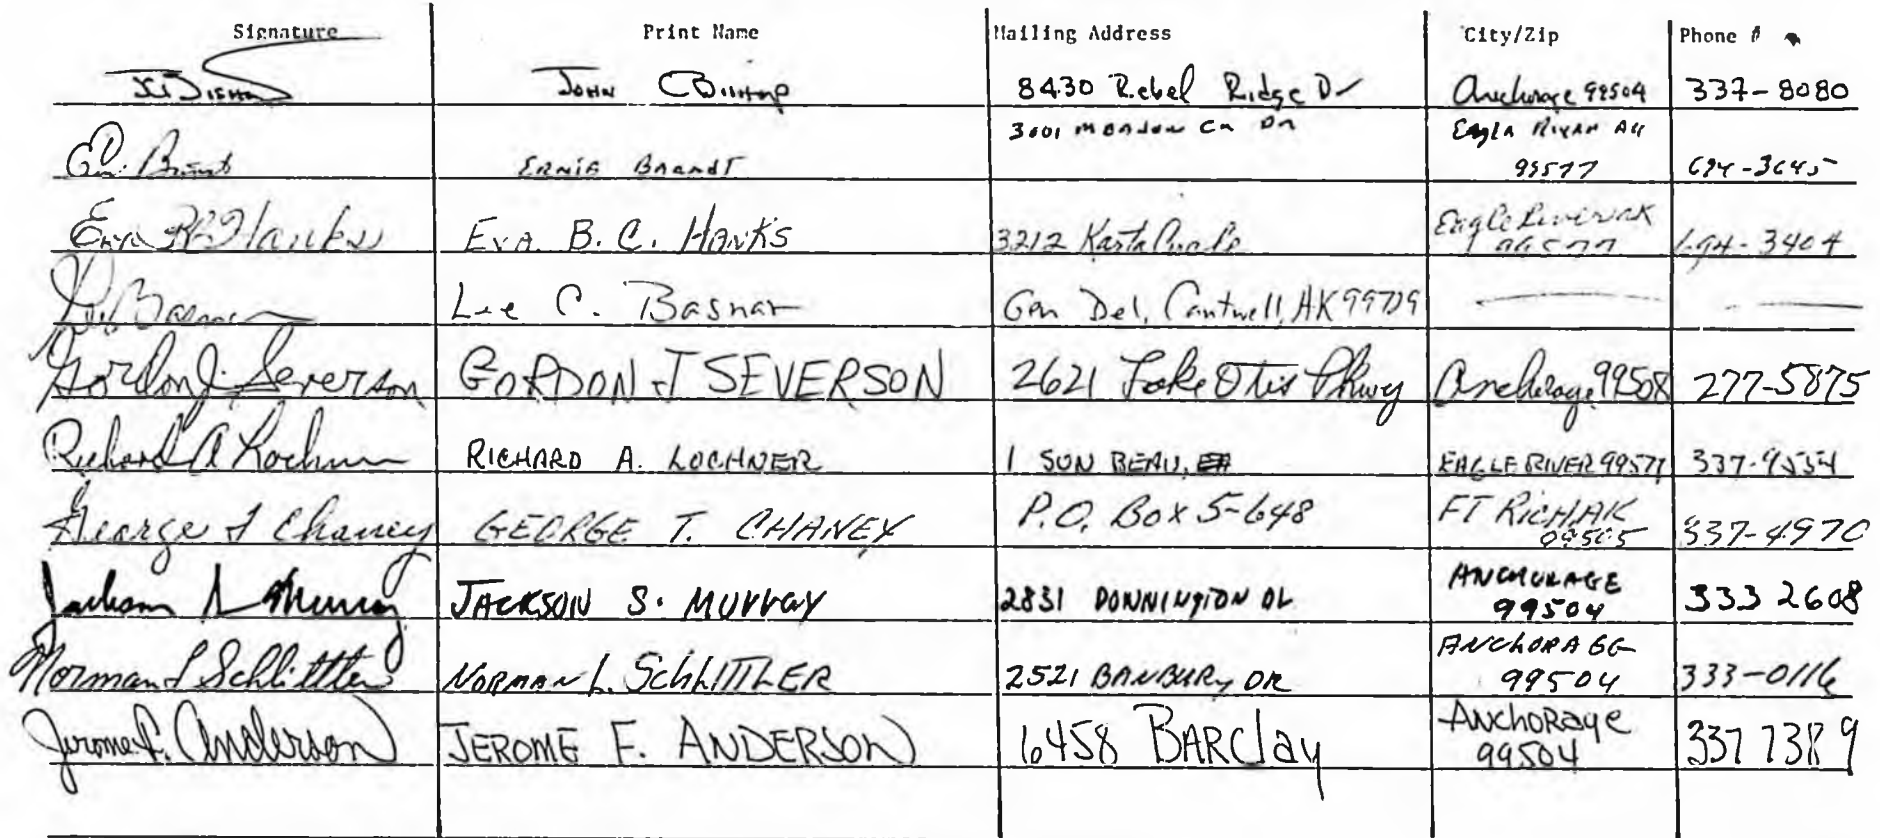 Signature Print Name Mailing Address City/Zip Phone #
John C Bishop 8430 Rebel Ridge Dr Anchorage 99504 337-8080
3001 Meadow Ck Dr Eagle River AK
Ernie Brandt 99577 694-3645
Eva B C Hanks Eva. B. C. Hanks 3212 Eagle River AK
99577 694-3404
Lee C. Basnar Gen Del, Cantwell, AK 99729
Gordon J. Severson GORDON J SEVERSON 2621 Lake Otis Pkwy Anchorage 99508 277-5875
Richard A Lochner RICHARD A. LOCHNER 1 SUN BEAU, EAGLE RIVER 99577 337-9534
George T Chaney GEORGE T. CHANEY P.O. Box 5-648 FT RICH AK
99505 337-4970
Jackson S Murray JACKSON S. MURRAY 2831 DONNINGTON DR ANCHORAGE
99504 333 2608
Norman L Schlittler NORMAN L. SCHLITTLER 2521 BANBURY DR ANCHORAGE
99504 333-0116
Jerome F. Anderson JEROME F. ANDERSON 6458 BARClay ANchoRage
99504 337 7389